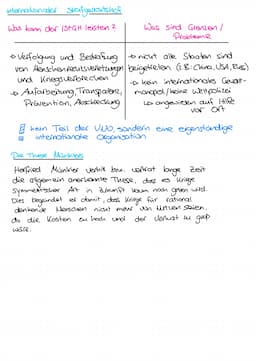 Internationaler Strafgerichtshof
Was kann der IStGH leisten?
→ Verfolgung und Bestrafung
von Menschenrechtsverletzungen
und Kriegsverbrechen
→ Aufarbeitung, Transparenz,
Prävention, Abschreckung
Was sind Grenzen/
Probleme
→ nicht alle Staaten sind
beigetreten (z.B. China, USA, Russ)
→ kein internationales Gewalt-
monopol/keine Weltpolizei
↳ angewiesen auf Hilfe
vor Ort
kein Teil der UNO, sondern eine eigenständige
internationale Organisation
Die These Münklers
Herfried Münkler vertrat lange Zeit
die allgemein anerkannte These, dass es Kriege
symmetrischer Art in Zukunft kaum noch geben wird.
Dies begründet er damit, dass Kriege für rational
denkende Menschen nicht mehr von Nutzen seien,
da die Kosten zu hoch und der Verlust zu groß
wäre.